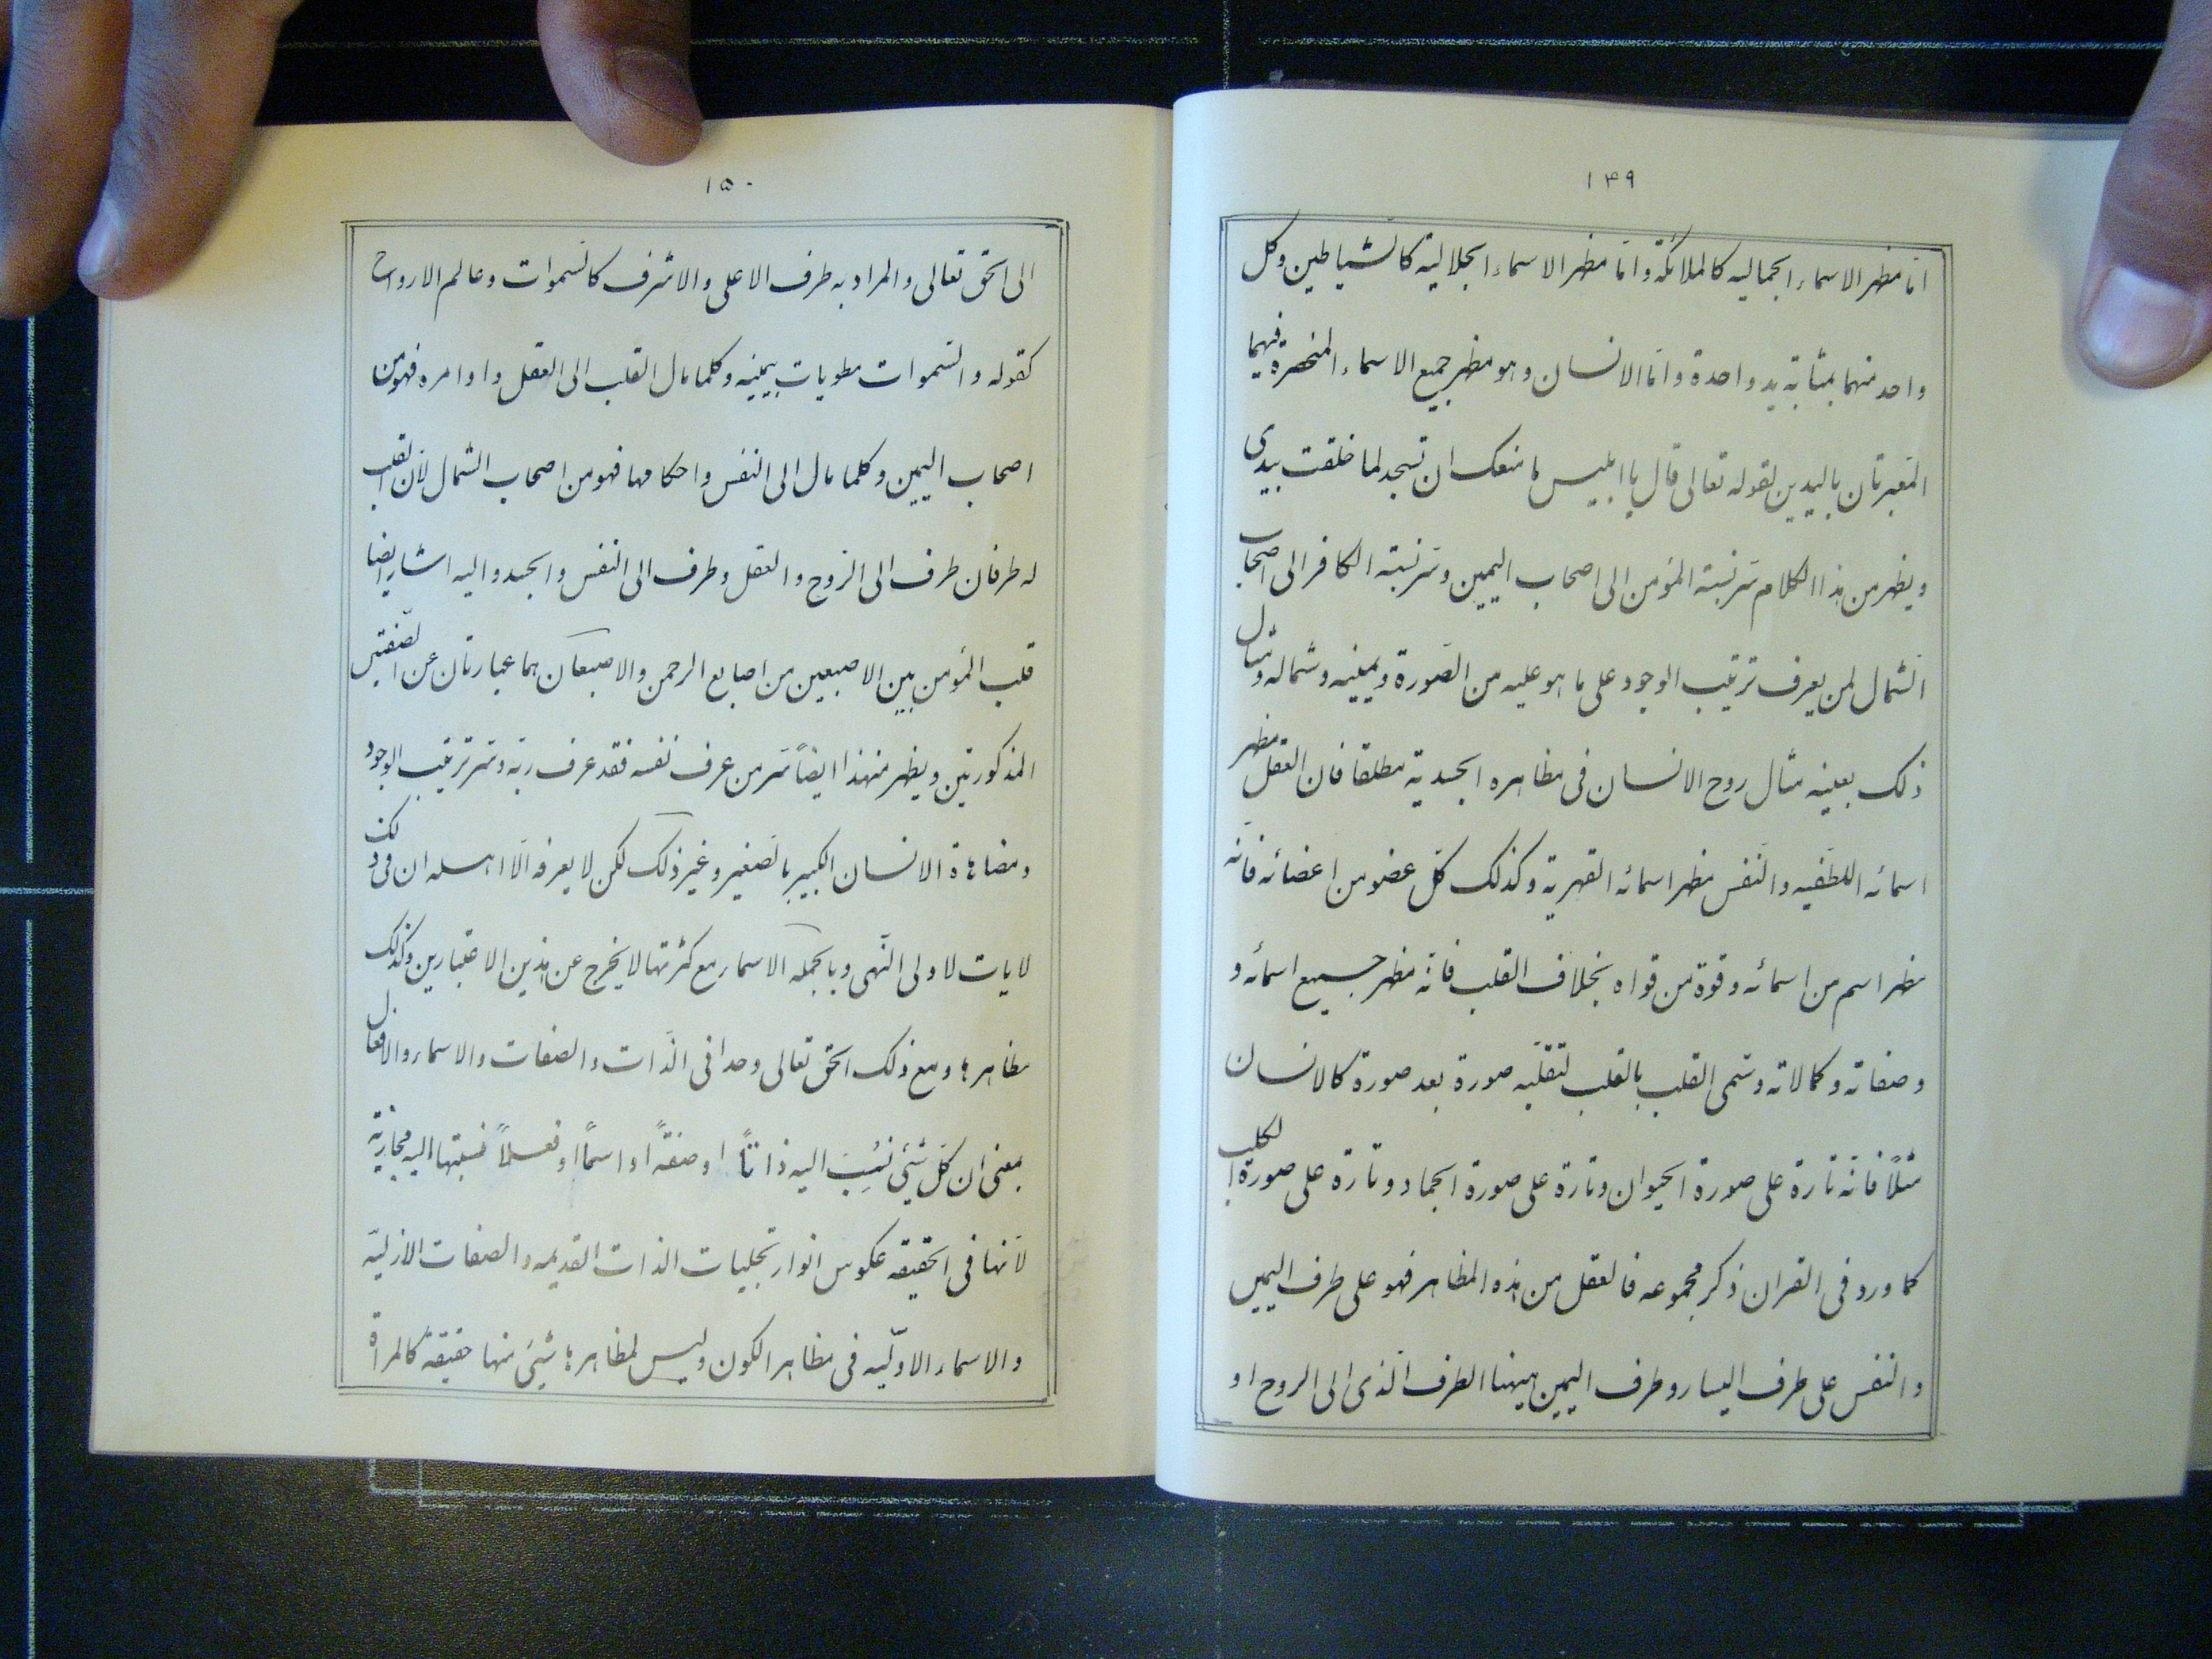 ١٤٩
اما مظهر الاسماء الجماليه كالملائكة واما مظهر الاسماء الجلالية كالشياطين وكل
واحد منهما بمثابة يد واحدة واما الانسان وهو مظهر جميع الاسماء المنحصرة فيهما
المعبرتان باليدين لقوله تعالى قال يا ابليس ما منعك ان تسجد لما خلقت بيدى
ويظهر من هذا الكلام سر نسبة المؤمن الى اصحاب اليمين وسر نسبة الكافر الى اصحاب
الشمال لمن يعرف ترتيب الوجود على ما هو عليه من الصورة ويمينه وشماله ومثال
ذلك بعينه مثال روح الانسان فى مظاهره الجسدية مطلقا فان العقل مظهر
اسمائه اللطفيه والنفس مظهر اسمائه القهرية وكذلك كل عضو من اعضائه فانه
مظهر اسم من اسمائه وقوة من قواه بخلاف القلب فانه مظهر جميع اسمائه و
وصفاته وكمالاته وسمى القلب بالقلب لتقلبه صورة بعد صورة كالانسان
مثلاً فانه تارة على صورة الحيوان وتارة على صورة الجماد وتارة على صورة الكلب
كما ورد فى القران ذكر مجموعه فالعقل من هذه المظاهر فهو على طرف اليمين
والنفس على طرف اليسار وطرف اليمين هيهنا الطرف الذى الى الروح او
١٥٠
الى الحق تعالى والمراد به طرف الاعلى والاشرف كالسموات وعالم الارواح
كقوله والسموات مطويات بيمينه وكلما مال القلب الى العقل واوامره فهو من
اصحاب اليمين وكلما مال الى النفس واحكامها فهو من اصحاب الشمال لأن القلب
له طرفان طرف الى الروح والعقل وطرف الى النفس والجسد واليه اشار ايضا
قلب المؤمن بين الاصبعين من اصابع الرحمن والاصبعان هما عبارتان عن الصفتين
المذكورتين ويظهر منهذا ايضاً سر من عرف نفسه فقد عرف ربه وسر ترتيب الوجود
ومضاهاة الانسان الكبير بالصغير وغير ذلك لكن لا يعرفه الا اهله ان فى ذلك
لايات لاولى النهى وبالجمله الاسماء مع كثرتها لا يخرج عن هذين الاعتبارين وكذلك
مظاهرها ومع ذلك الحق تعالى وحد فى الذات والصفات والاسماء والافعال
بمعنى ان كل شيئ نُسِبَ اليه ذاتاً او صفةً او اسماً او فعلاً فنسبتها اليه مجازية
لأنها فى الحقيقه عكوس انوار تجليات الذات القديمه والصفات الأزليه
والاسماء الاوليّه فى مظاهر الكون وليس لمظاهرها شيئ منها حقيقة كالمراة